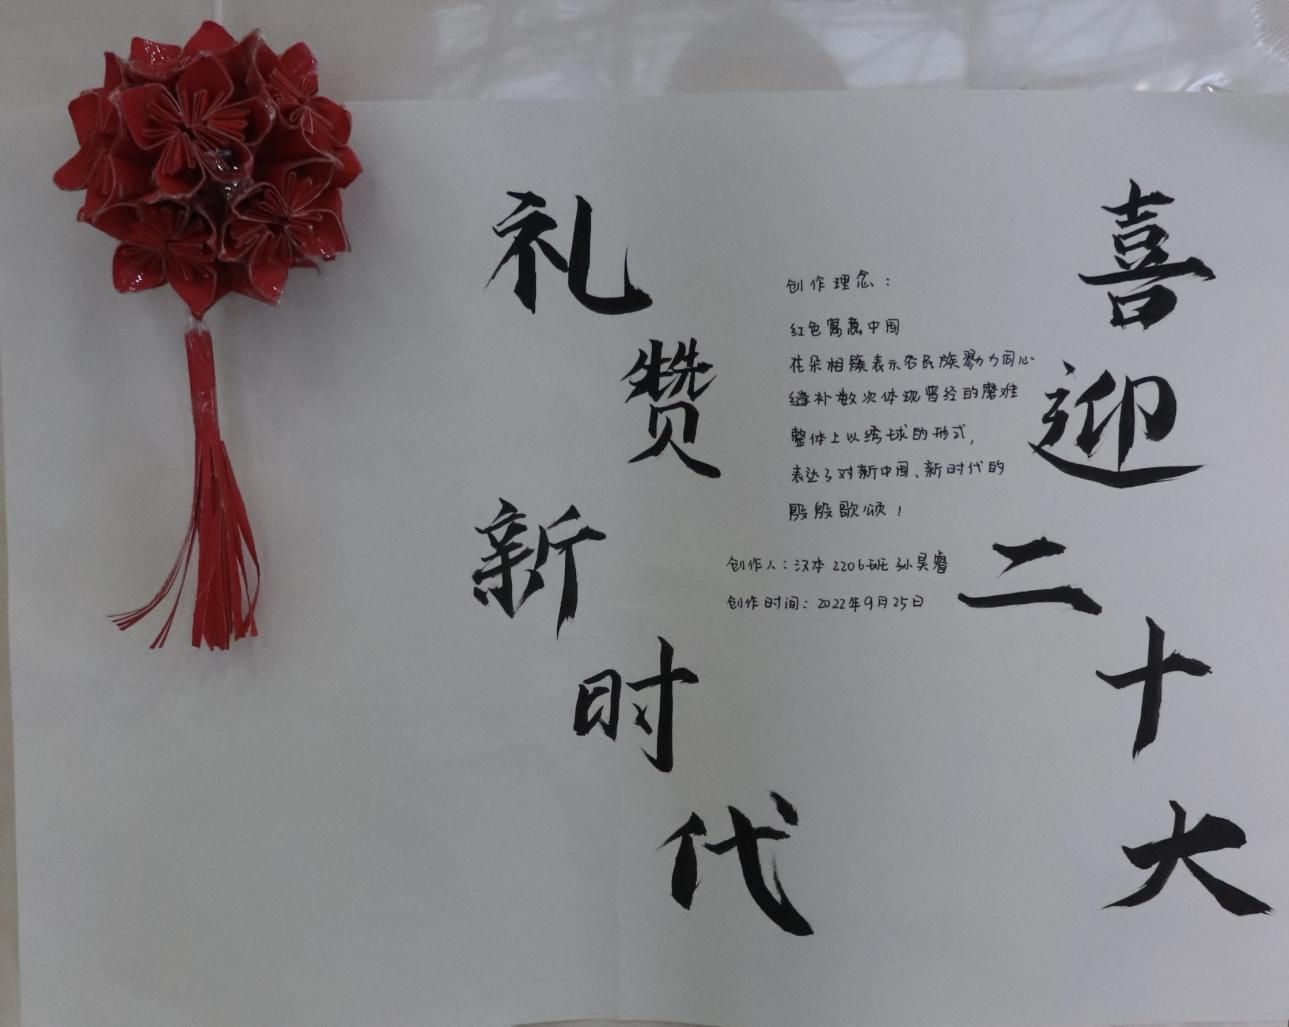 喜迎二十大
创作理念：
红色寓意中国
花朵相簇表示各民族勠力同心
缝补数次体现曾经的磨难
整体上以绣球的形式，
表达了对新中国、新时代的
殷殷歌颂！
创作人：汉本2206班孙昊睿
创作时间：2022年9月25日
礼赞新时代